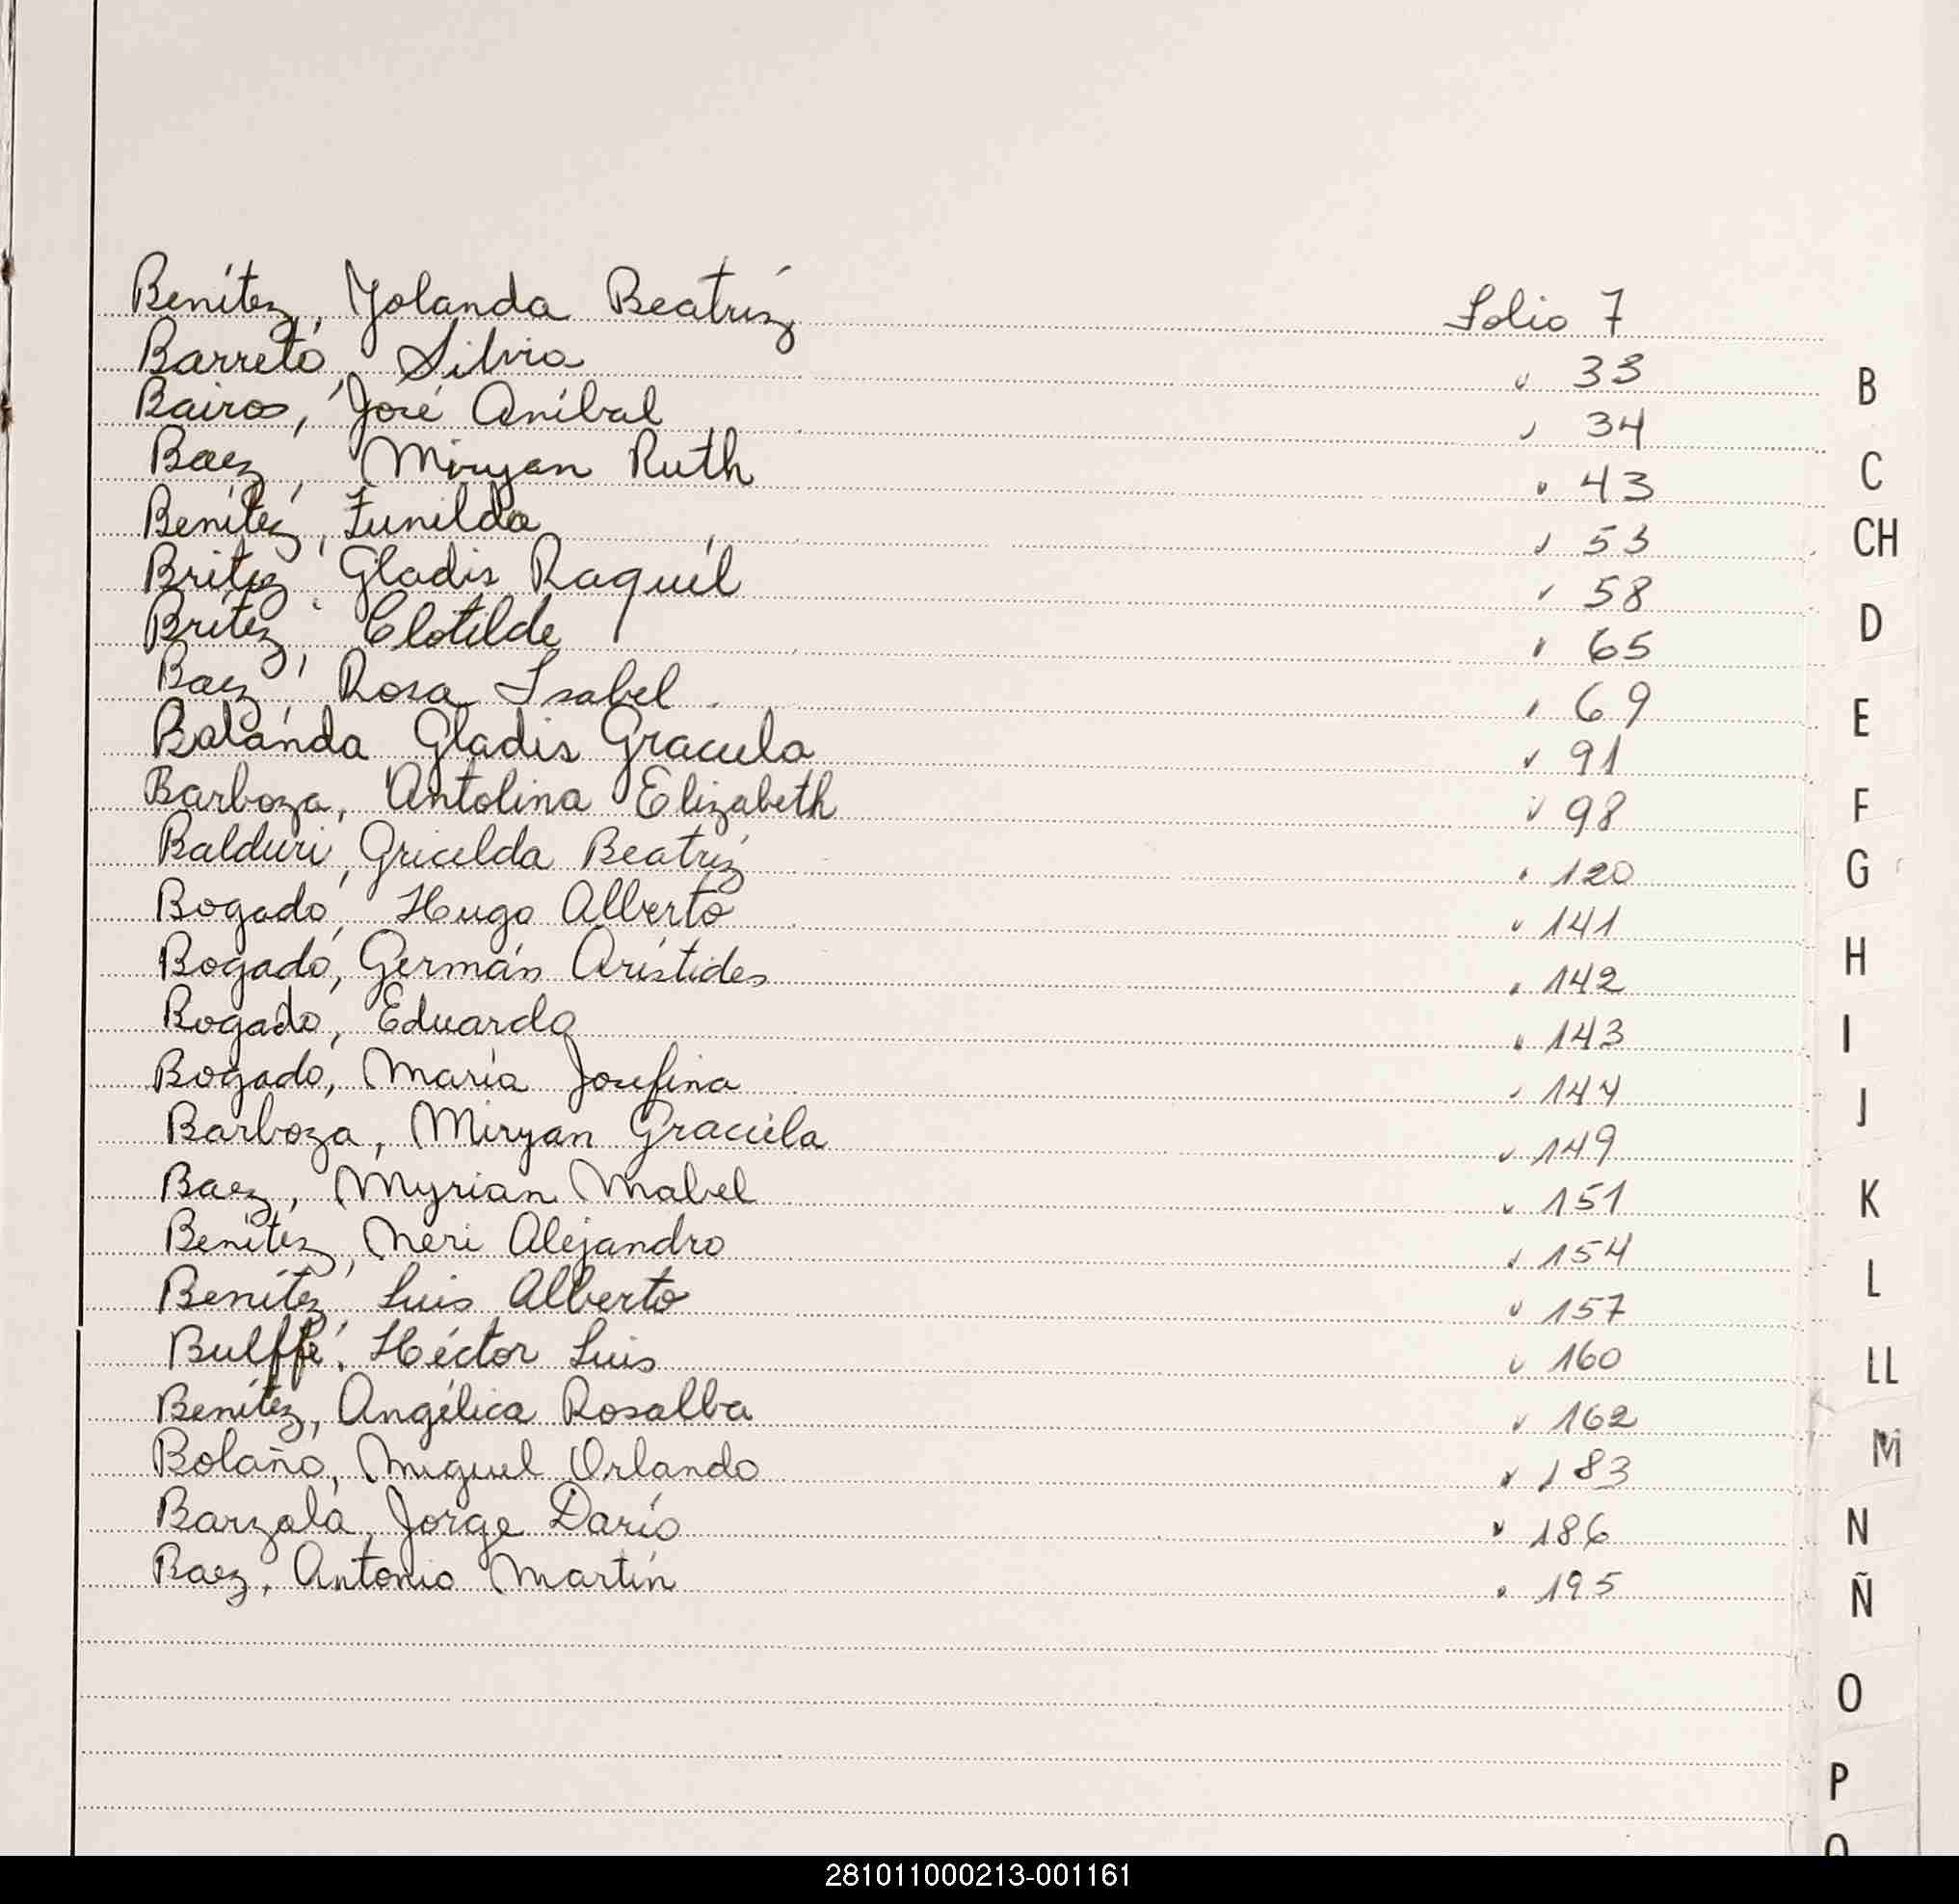 Benítez, Yolanda Beatríz Folio 7
Barreto, Silvia " 33
B
Bairos, José Aníbal " 34
Baez, Miryan Ruth " 43
C
Benítez, Zunilda " 53
CH
Britez, Gladis Raquel " 58
Britez, Clotilde " 65
D
Baez, Rosa Isabel " 69
E
Balanda Gladis Graciela " 91
Barboza, Antolina Elizabeth " 98
F
Balduri, Gricelda Beatríz " 120
G
Bogado, Hugo Alberto " 141
Bogado, Germán Arístides " 142
H
Bogado, Eduardo " 143
I
Bogado, María Josefina " 144
J
Barboza, Miryan Graciela " 149
Baez, Myrian Mabel " 151
K
Benítez, Neri Alejandro " 154
L
Benítez, Luis Alberto " 157
Bulffe, Héctor Luis " 160
LL
Benítez, Angélica Rosalba " 162
M
Bolaño, Miguel Orlando " 183
Barzola, Jorge Darío " 186
N
Baez, Antonio Martín " 195
Ñ
O
P
281011000213-001161